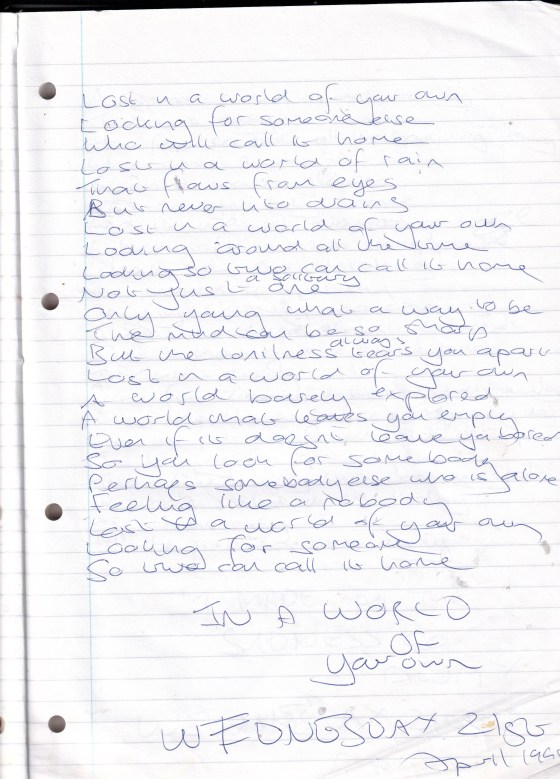 Lost in a world of your own
Looking for someone else
Who will call it home
Lost in a world of rain
That flows from eyes
But never into drains
Lost in a world of your own
Looking around all the time
Looking so two can call it home
Not just a solitary one
Only young what a way to be
The mind can be so sharp
But the lonilness always tears you apart
Lost in a world of your own
A world barely explored
A world that leaves you empty
Even if it doesn't leave ya bored
So you look for somebody
Perhaps somebody else who is alone
Feeling like a nobody
Lost a world of your own
Looking for someone
So two can call it home
IN A WORLD
OF
your own
WEDNESDAY 21st
April